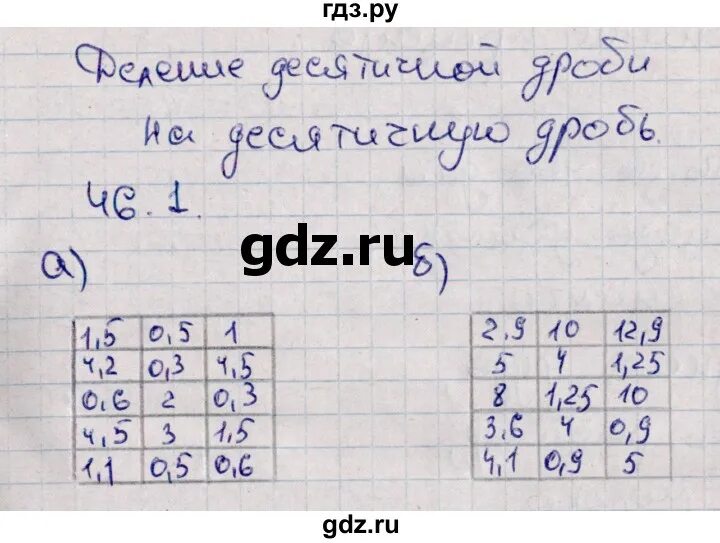 гдз.ру
Деление десятичной дроби
на десятичную дробь.
46.1.
gdz.ru
а) б)
1,5 0,5 1
4,2 0,3 4,5
0,6 2 0,3
4,5 3 1,5
1,1 0,5 0,6
2,9 10 12,9
5 4 1,25
8 1,25 10
3,6 4 0,9
4,1 0,9 5
gdz.ru